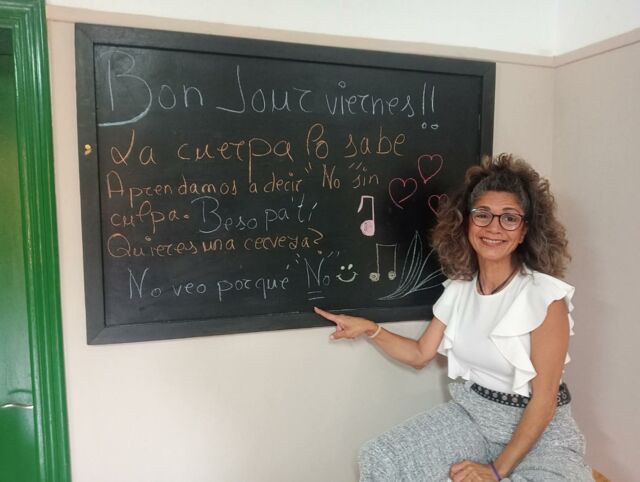 Bon Jour viernes!!
La cuerpa lo sabe
Aprendamos a decir "No" sin
culpa. Beso pa' tí
Quieres una cerveza?
No veo porqué "No"